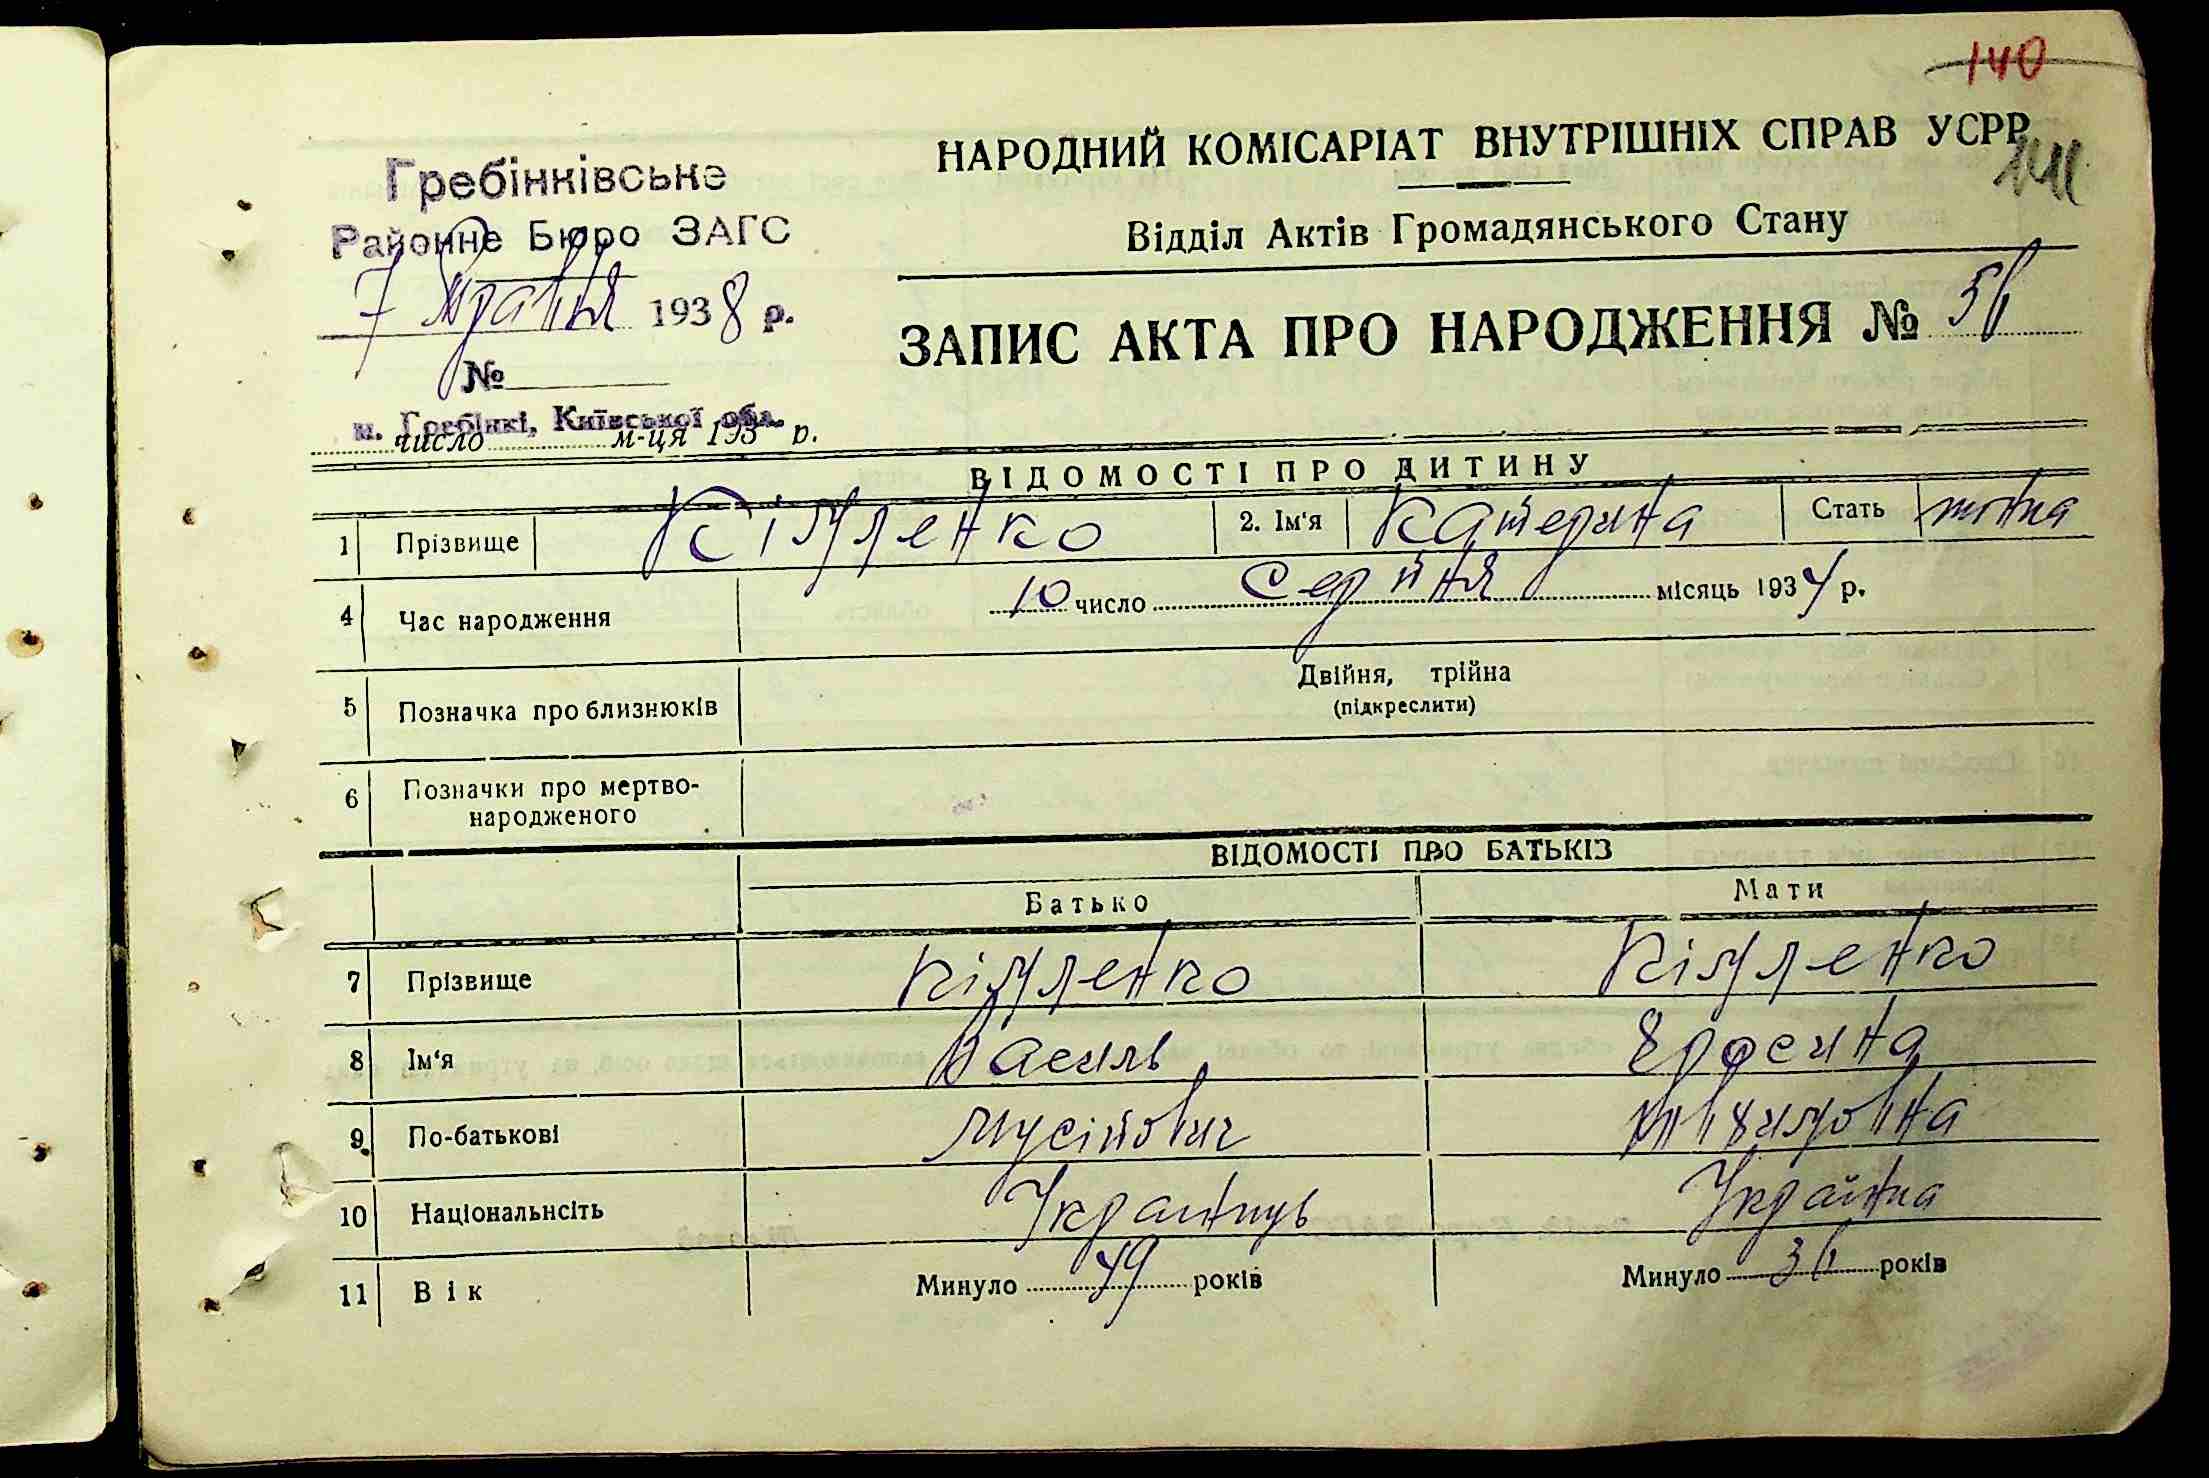 140
НАРОДНИЙ КОМІСАРІАТ ВНУТРІШНІХ СПРАВ УСРР
141
Гребінківське
Районне Бюро ЗАГС
7 травня 1938 р.
№
м. Гребінкі, Київської обл.
число м-ця 193 р.
Відділ Актів Громадянського Стану
ЗАПИС АКТА ПРО НАРОДЖЕННЯ № 56
ВІДОМОСТІ ПРО ДИТИНУ
1 Прізвище Кізлленко 2. Ім'я Катерина Стать жіноча
4 Час народження 10 число Серпня місяць 1934 р.
5 Позначка про близнюків Двійня, трійна
(підкреслити)
6 Позначки про мертво-
народженого
ВІДОМОСТІ ПРО БАТЬКІВ
Батько Мати
7 Прізвище
8 Ім'я Василь Єфросина
9 По-батькові Мусійович
10 Національнсіть Українець Українка
11 Вік Минуло 49 років Минуло 36 років